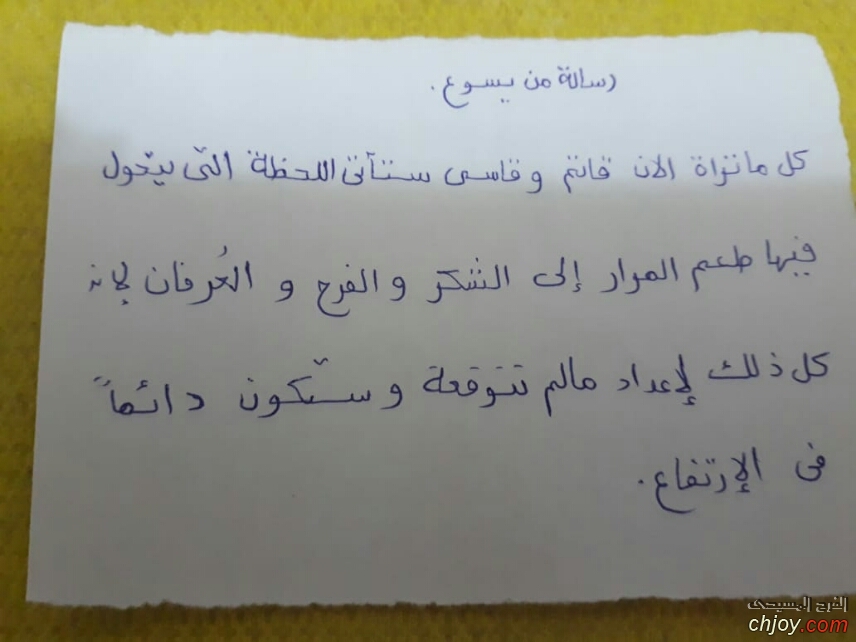 رسالة من يسوع.
كل ماتراة الان قاتم وقاسى ستأتى اللحظة التى يتحول
فيها طعم المرار إلى الشكر والفرح و العُرفان لانه
كل ذلك لإعداد مالم تتوقعة وستكون دائماً
فى الإرتفاع.
الفرح المسيحى
chjoy.com